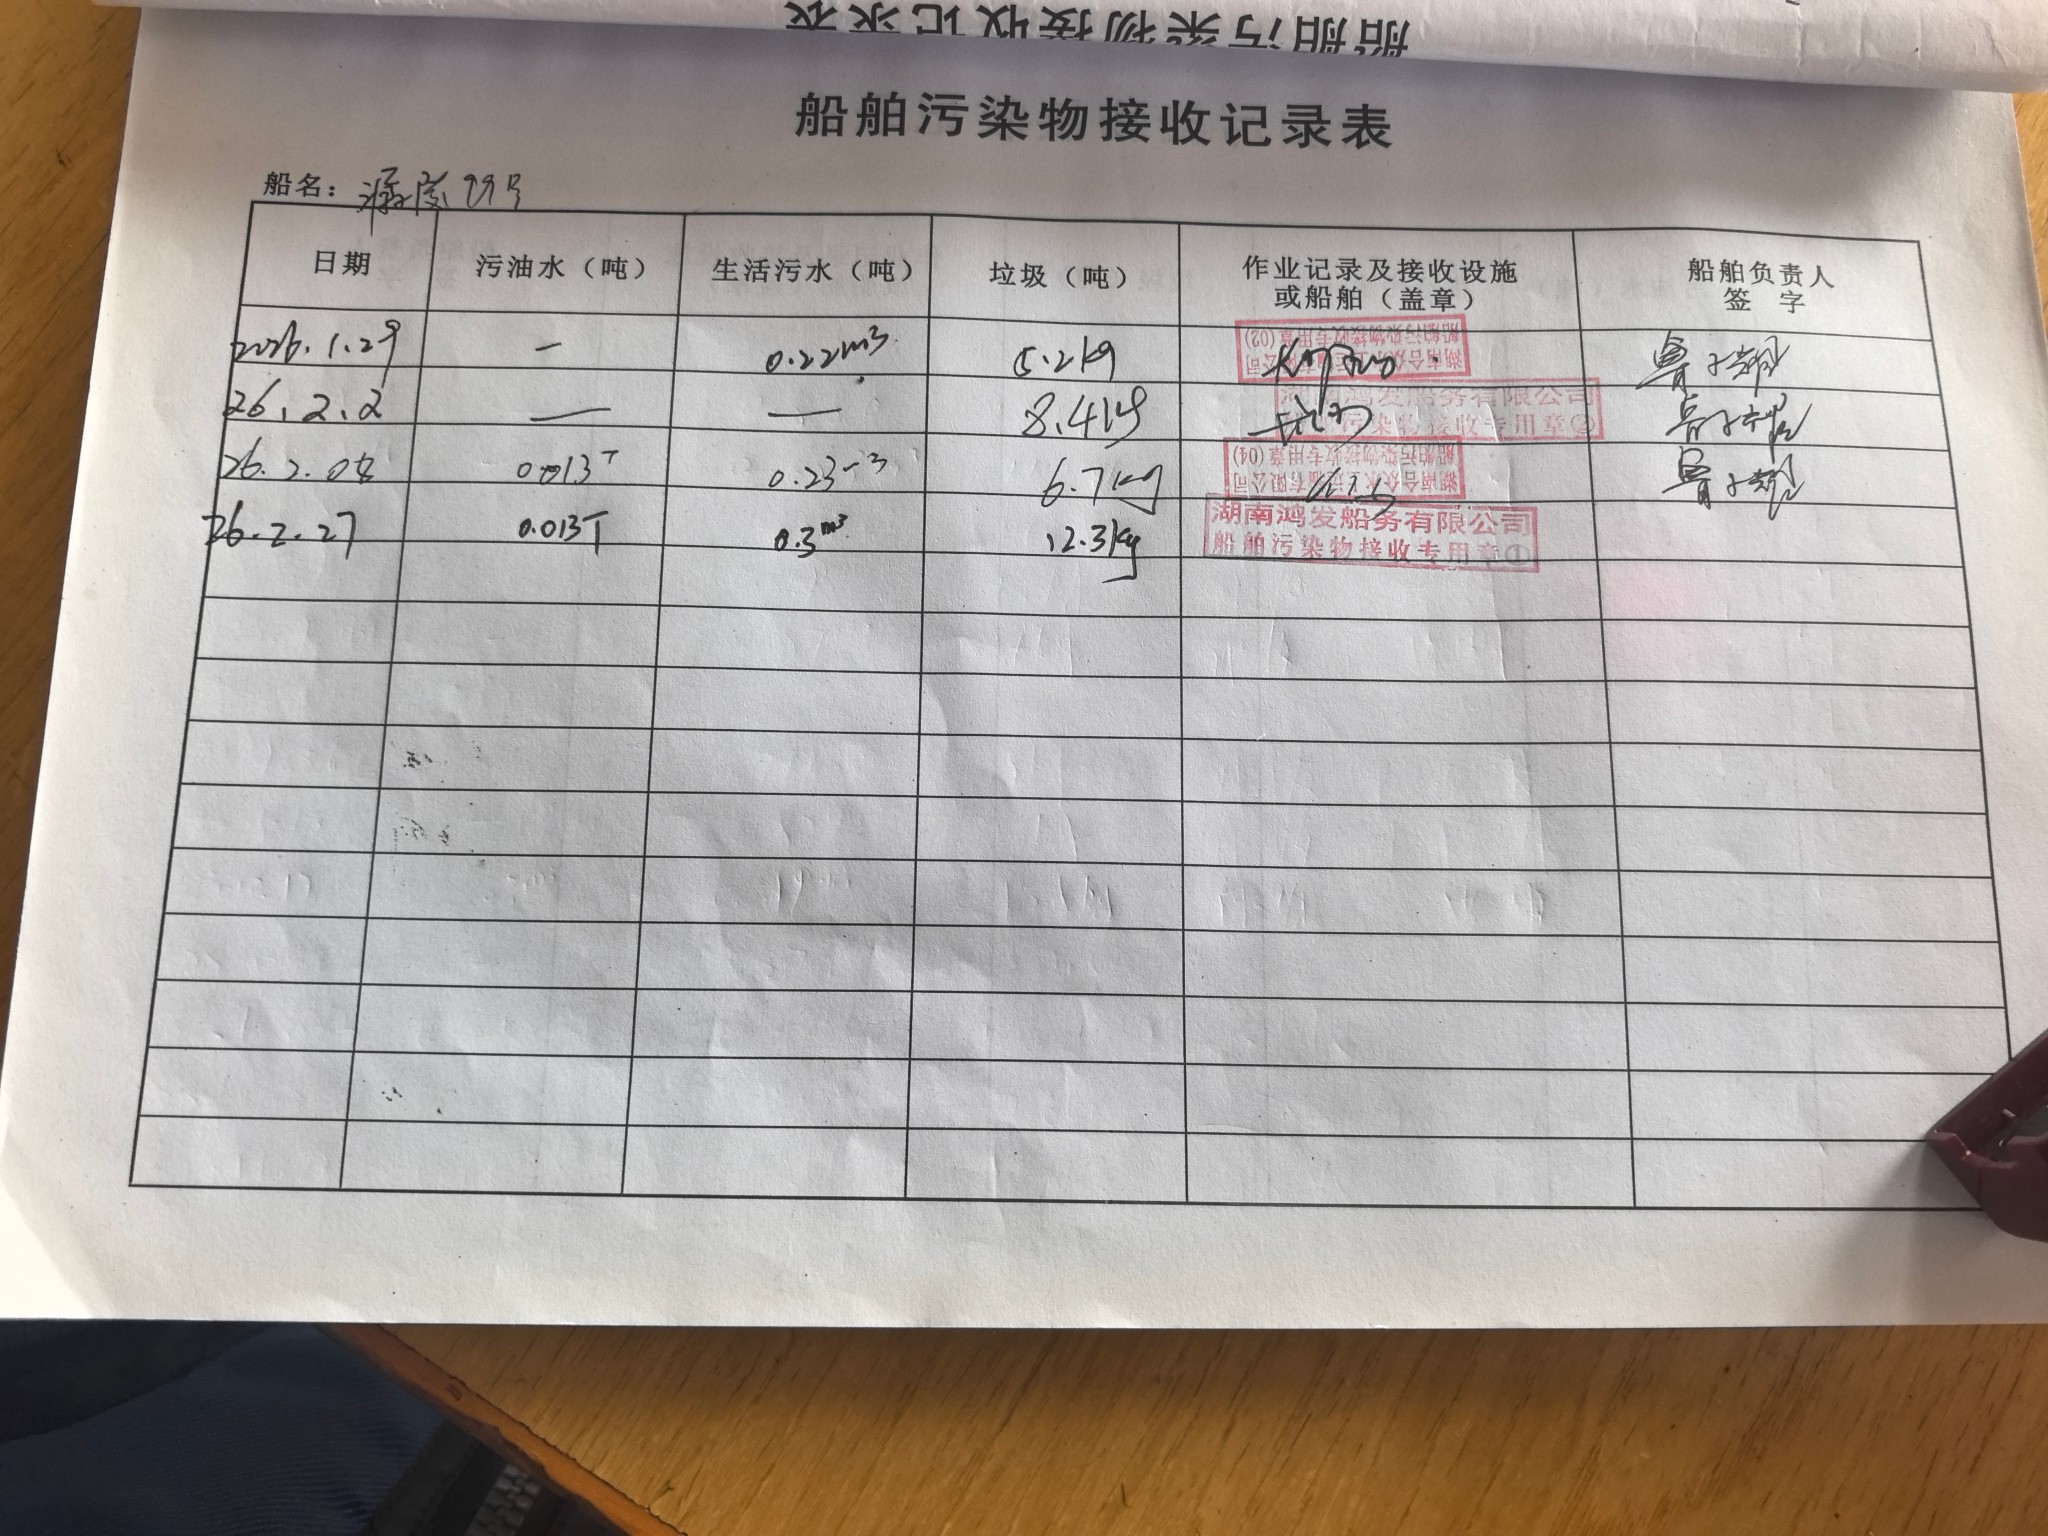 船舶污染物接收记录表
船舶污染物接收记录表
船名： 99号
日期 污油水（吨） 生活污水（吨） 垃圾（吨） 作业记录及接收设施 船舶负责人
或船舶（盖章） 签 字
2026.1.29 — 0.22m3 5.2kg
湖南合众水上运输有限公司
船舶污染物接收专用章(02)
26.2.2 — — 8.4kg
湖南鸿发船务有限公司
船舶污染物接收专用章②
26.2.08 0.013T 0.23m3 6.7kg
湖南合众水上运输有限公司
船舶污染物接收专用章(04)
26.2.27 0.013T 0.3m³ 12.3kg
湖南鸿发船务有限公司
船舶污染物接收专用章①